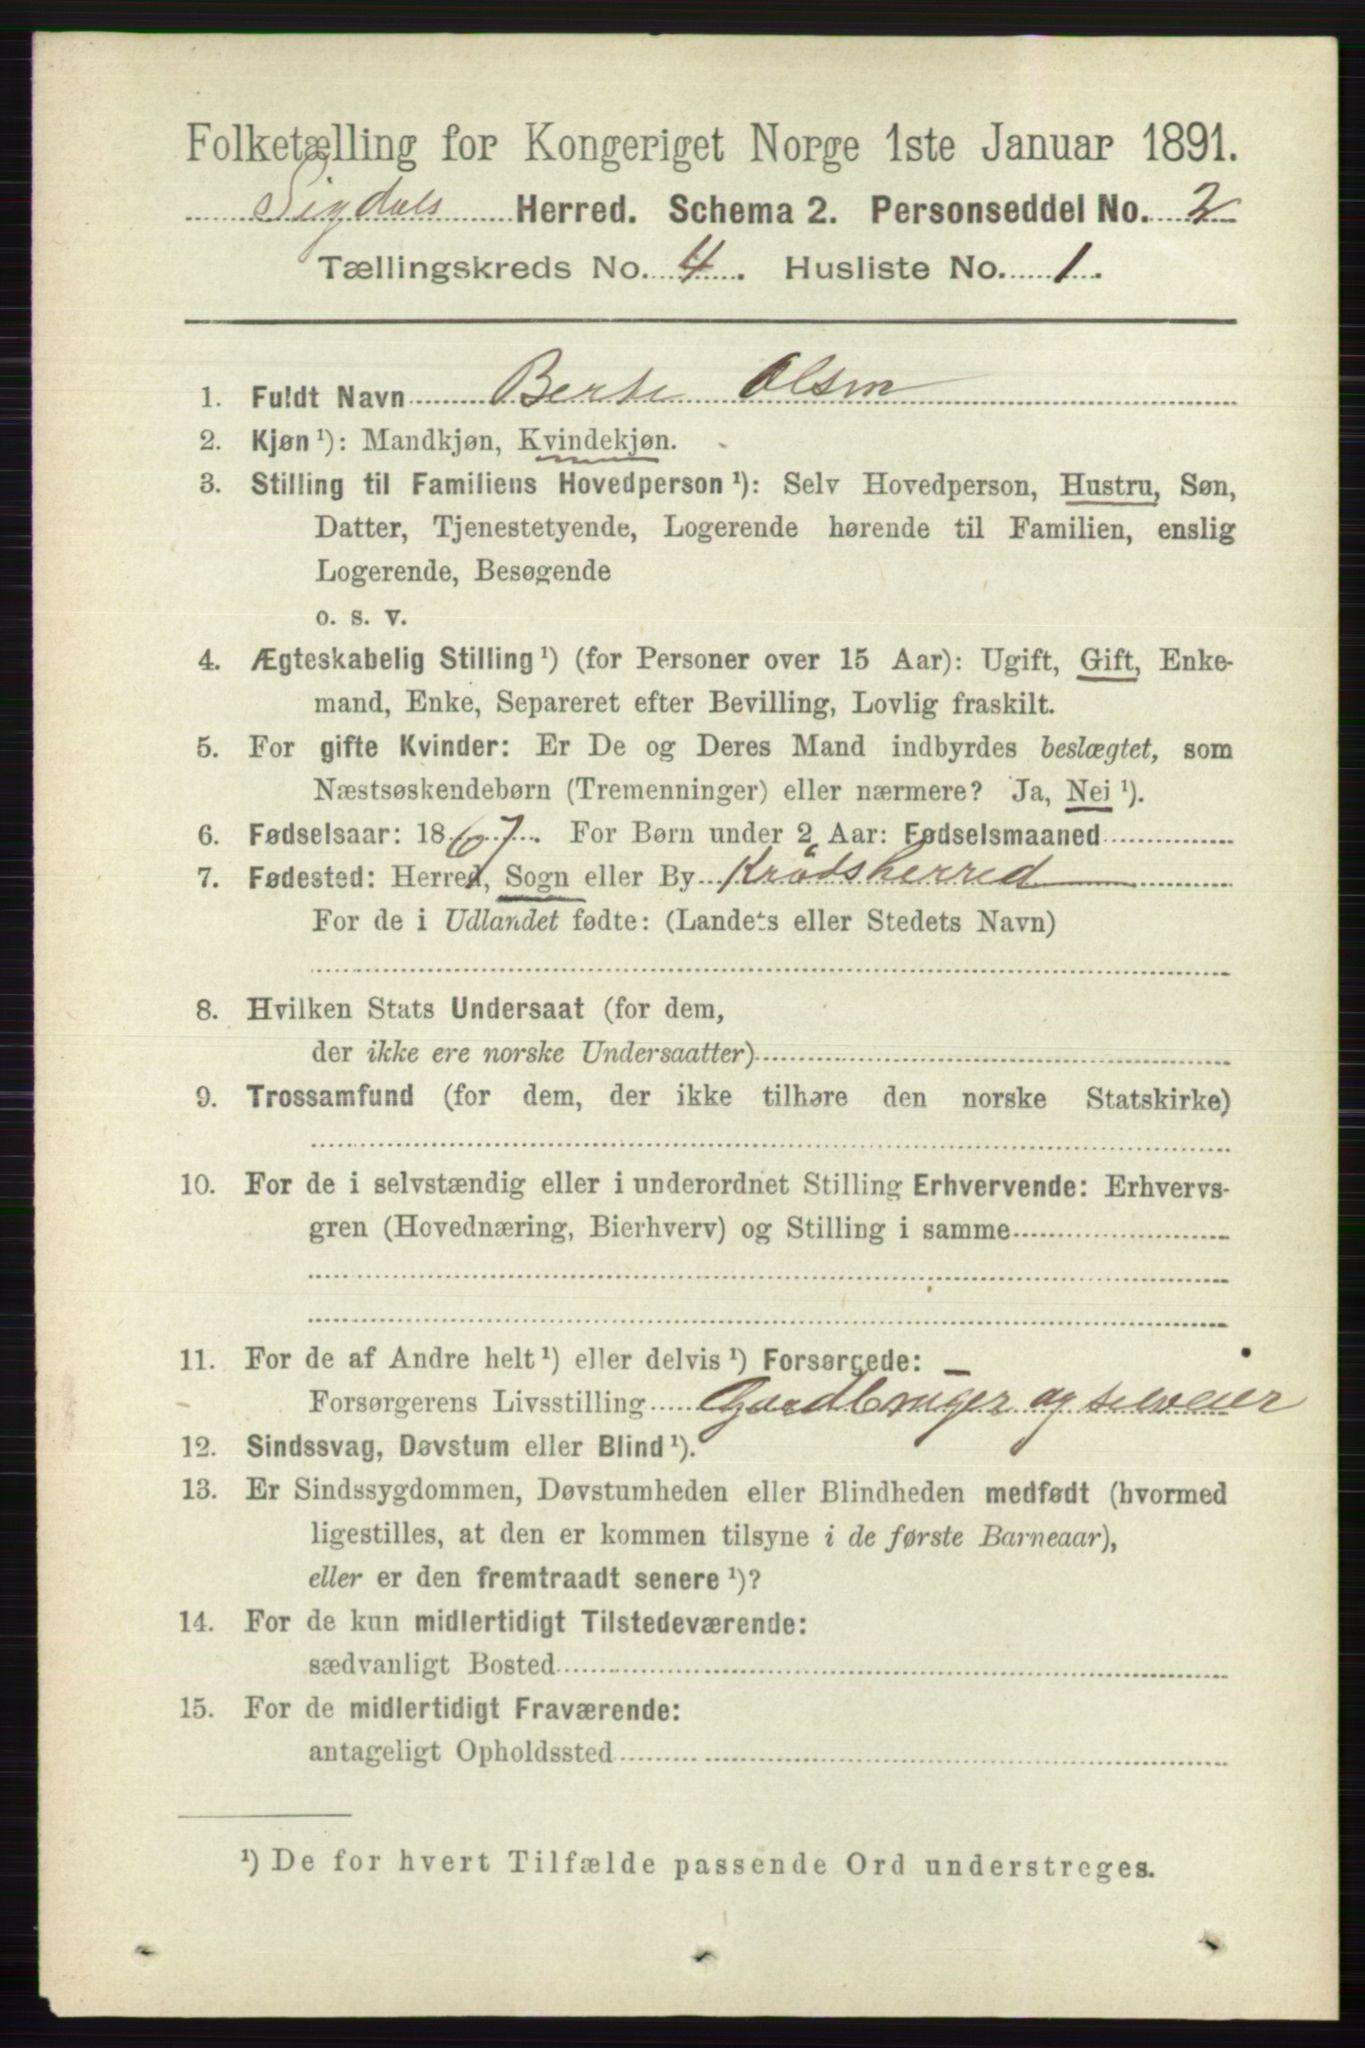 Folketælling for Kongeriget Norge 1ste Januar 1891.
Sigdals Herred. Schema 2. Personseddel No. 2
Tællingskreds No. 4. Husliste No. 1.
1. Fuldt Navn Berte Olsen
2. Kjøn ¹): Mandkjøn, Kvindekjøn.
3. Stilling til Familiens Hovedperson ¹): Selv Hovedperson, Hustru, Søn,
Datter, Tjenestetyende, Logerende hørende til Familien, enslig
Logerende, Besøgende
o. s. v.
4. Ægteskabelig Stilling ¹) (for Personer over 15 Aar): Ugift, Gift, Enke-
mand, Enke, Separeret efter Bevilling, Lovlig fraskilt.
5. For gifte Kvinder: Er De og Deres Mand indbyrdes beslægtet, som
Næstsøskendebørn (Tremenninger) eller nærmere? Ja, Nei ¹).
6. Fødselsaar: 1867. For Børn under 2 Aar: Fødselsmaaned
7. Fødested: Herred, Sogn eller By Krødsherred
For de i Udlandet fødte: (Landets eller Stedets Navn)
8. Hvilken Stats Undersaat (for dem,
der ikke ere norske Undersaatter)
9. Trossamfund (for dem, der ikke tilhøre den norske Statskirke)
10. For de i selvstændig eller i underordnet Stilling Erhvervende: Erhvervs-
gren (Hovednæring, Bierhverv) og Stilling i samme
11. For de af Andre helt ¹) eller delvis ¹) Forsørgede:
Forsørgerens Livsstilling Gaardbruger og selveier
12. Sindssvag, Døvstum eller Blind ¹).
13. Er Sindssygdommen, Døvstumheden eller Blindheden medfødt (hvormed
ligestilles, at den er kommen tilsyne i de første Barneaar),
eller er den fremtraadt senere ¹)?
14. For de kun midlertidigt Tilstedeværende:
sædvanligt Bosted
15. For de midlertidigt Fraværende:
antageligt Opholdssted
¹) De for hvert Tilfælde passende Ord understreges.